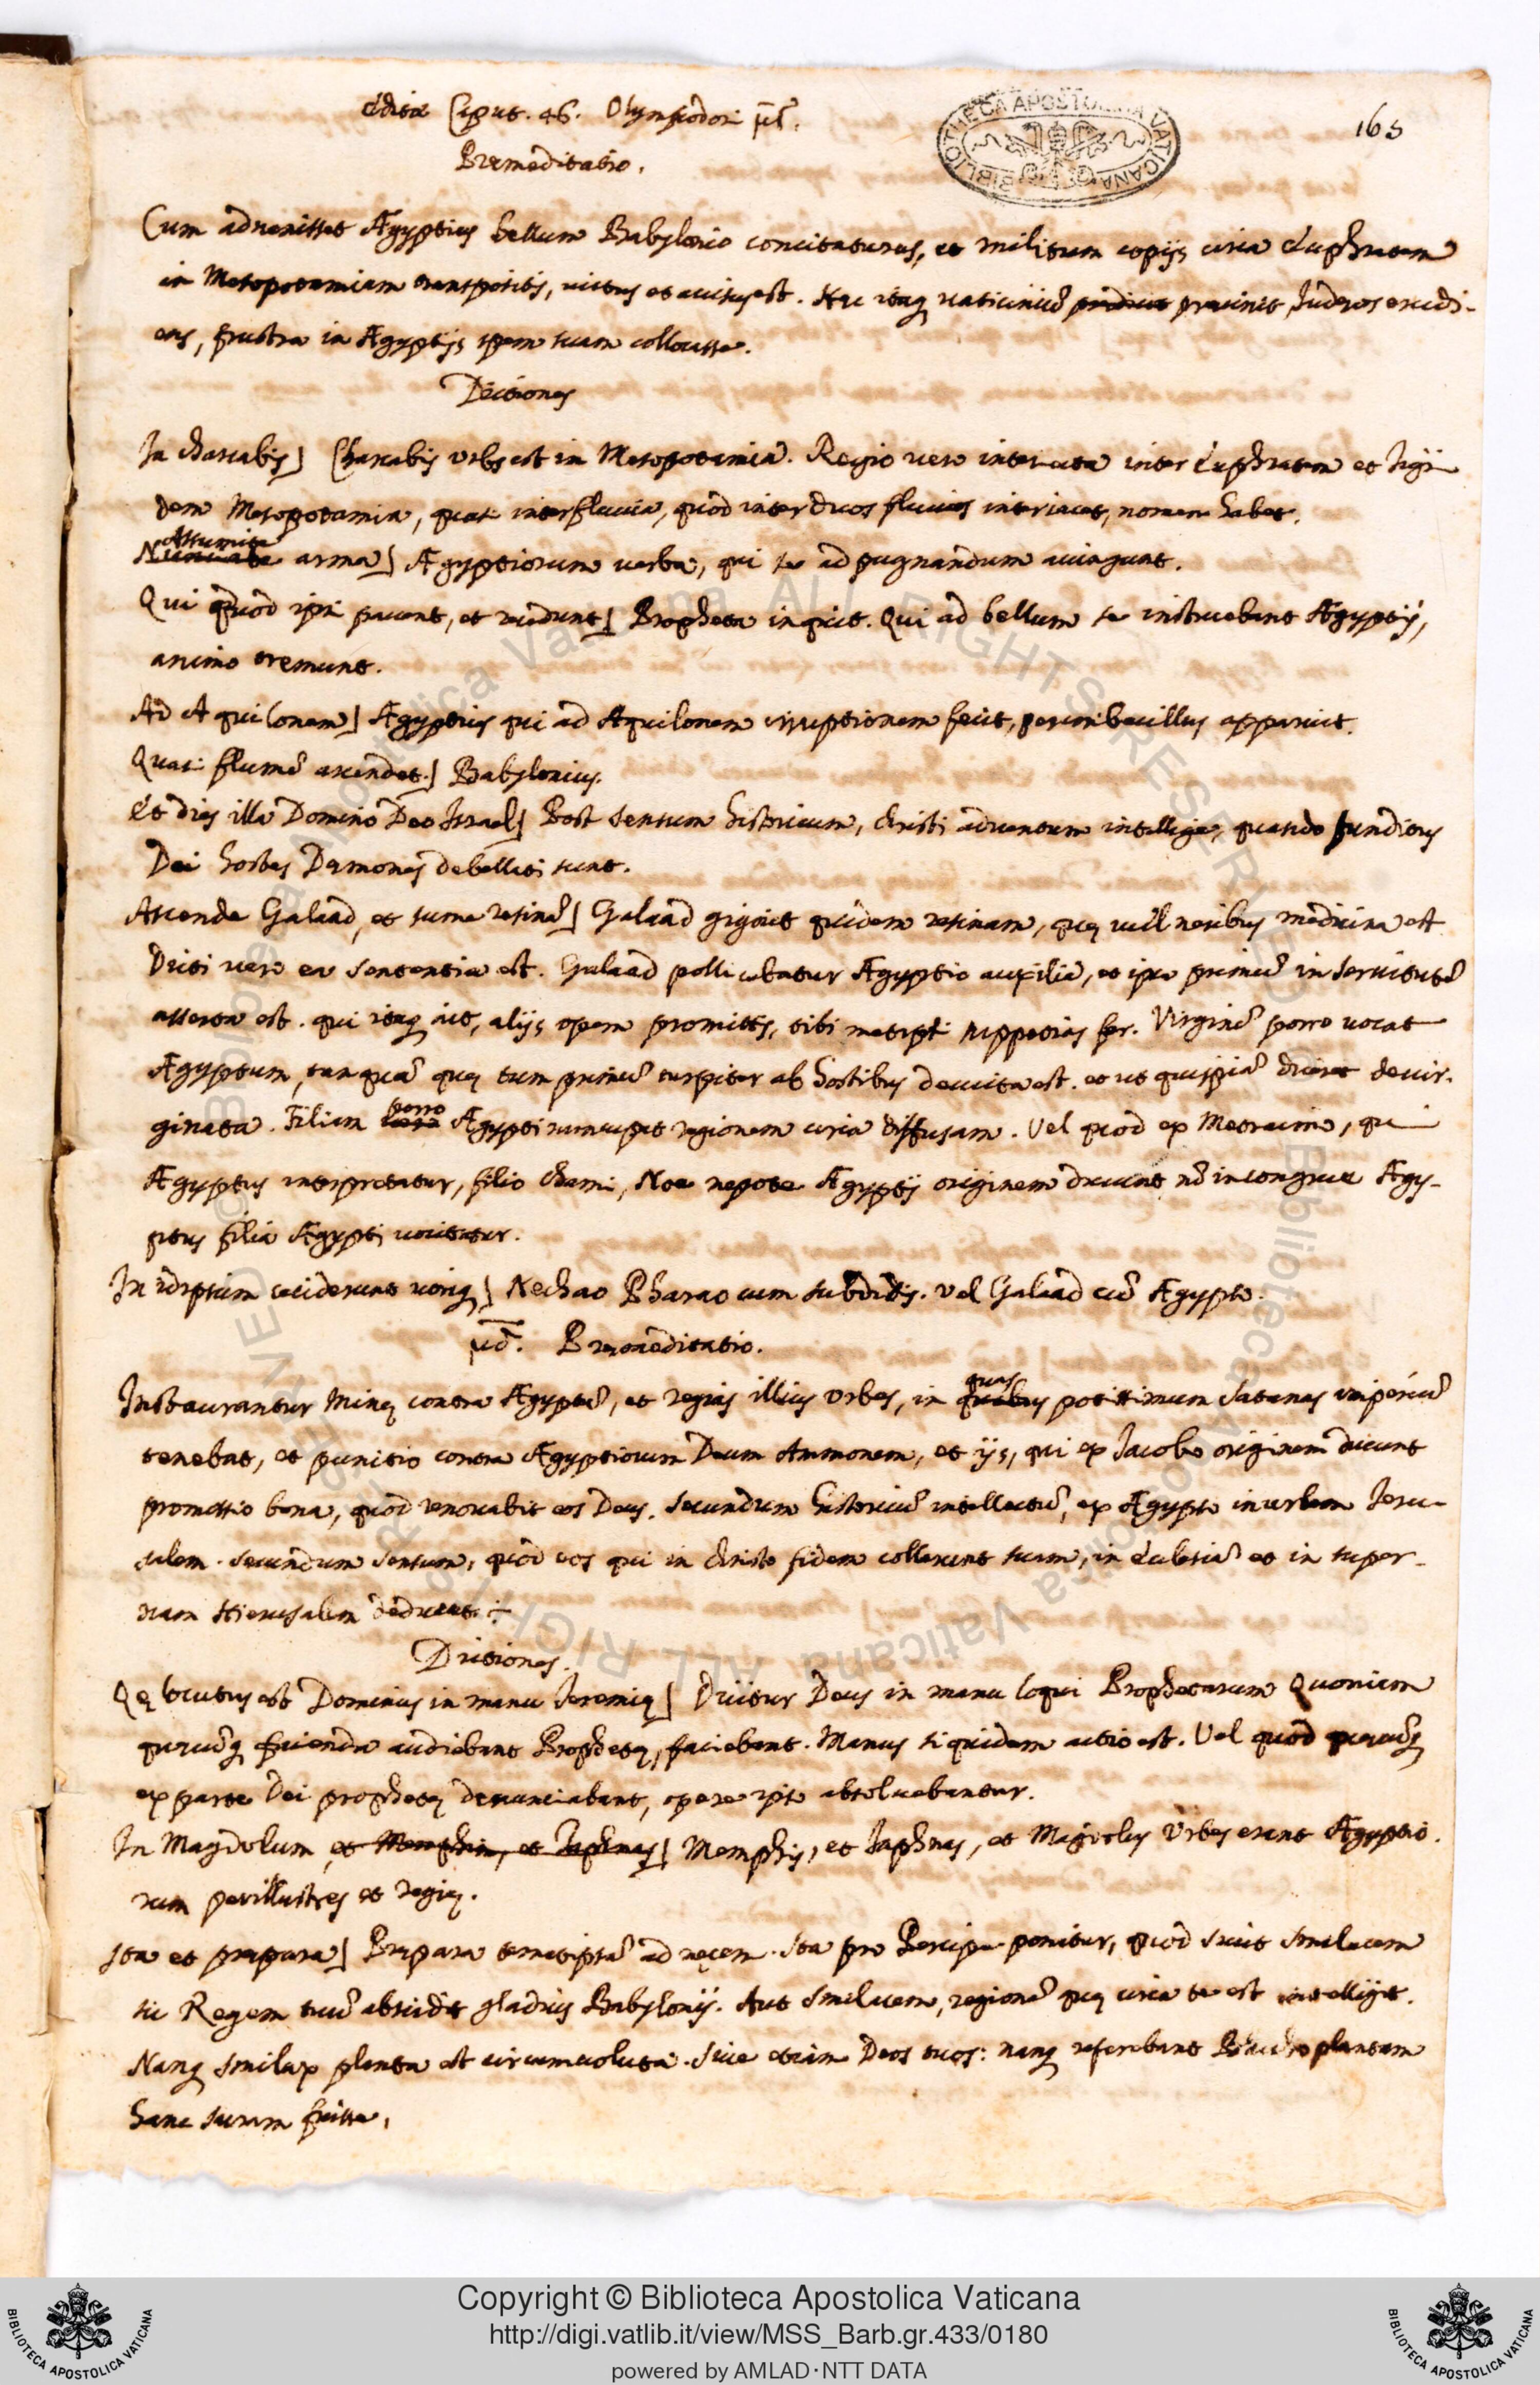 Editæ Caput. 46. Olympiodori μγ.
165
Præmeditatio.
Cum advenisset Ægyptius bellum Babylonio concitaturus, et militum copijs circa Euphratem
in Mesopotamiam transpositis, victus et accisus est. Hæc itaq vaticiniũ prædicit præcinit, Judæos erudi-
ens, frustra in Ægyptijs spem suam collocasse.
Dictiones
In Charcabis] Charcabis urbs est in Mesopotamia. Regio vero interiecta inter Euphratem et Tigri
dem Mesopotamia, quasi interfluvia, quod inter duos fluvios interiacet, nomen habet.
Assumite
Nunciate arma] Ægyptiorum verba, qui se ad pugnandum accingunt.
Qui quod ipsi pavent, et recedunt] Propheta inquit. Qui ad bellum se instruebant Ægyptij,
animo tremunt.
Ad Aquilonem] Ægyptius qui ad Aquilonem irruptionem fecit, perimbecillus apparuit.
Quasi flumẽ ascendet.] Babylonius.
Et dies illa Domino Deo Israel] Post sensum historicum, Christi adventum intellige, quando funditus
Dei hostes Dæmones debellati sunt.
Ascende Galaad, et sume resinã] Galaad gignit quidem resinam, quę vulneribus medicina est
Dicti vero ea sententia est. Galaad pollicebatur Ægyptio auxiliũ, et ipse primũ in servitutẽ
asserta est. qui itaq ait, alijs opem promittis, tibi metipsi suppetias fer. Virginẽ porro vocat
Ægyptum, tanquã quę tum primũ turpiter ab hostibus devicta est. et ut quispiã diceret devir-
ginata. Filiam vero porro Ægypti nuncupat regionem circa diffusam. Vel quod ex Mesraimo, qui
Ægyptus interpretatur, filio Chami, Noe nepote Ægyptij originem ducunt nõ incongrue Ægy-
ptus filia Ægypti vocitatur.
In idipsum ceciderunt uterq] Nechao Pharao cum subditis. Vel Galaad cũ Ægypto.
μδ. Præmeditatio.
Instaurantur minę contra Ægyptũ, et regias illius urbes, in quibus quas potissimum Satanas imperiũ
tenebat, et punitio contra Ægyptiorum Deum Ammonem, et ijs, qui ex Jacobo originem ducunt
promissio bona, quod renovabit eos Deus, secundum historicũ intellectũ, ex Ægypto in urbem Jeru-
salem. secundum sensum, quod eos qui in Christo fidem collocarunt suam, in Ecclesiã et in super-
nam Hierusalem deducet :
Dictiones.
Quę locutus est Dominus in manu Jeremię] Dicitur Deus in manu loqui Prophetarum Quoniam
quæcũq facienda audiebant Prophetę, faciebant. Manus siquidem actio est. Vel quod quęcũq
ex parte Dei prophetę denunciabant, opere ipso absolvebantur.
In Magdolum, et Memphin, et Taphnas] Memphis, et Taphnas, et Magdolus urbes erant Ægyptio-
rum perillustres et regię.
Sta et præpara] Præpara temetipsã ad necem. Sta pro Percipe ponitur, quod sicut smilacem
sic Regem tuũ abscidit gladius Babylonij. Aut smilacem, regionẽ quę circa te est intelligit.
Nanq smilax planta est circumvoluta. Sive etiam Deos tuos: nanq referebant plantam
hanc sacram fuisse.
BIBLIOTHECA APOSTOLICA VATICANA
Copyright © Biblioteca Apostolica Vaticana
http://digi.vatlib.it/view/MSS_Barb.gr.433/0180
powered by AMLAD·NTT DATA